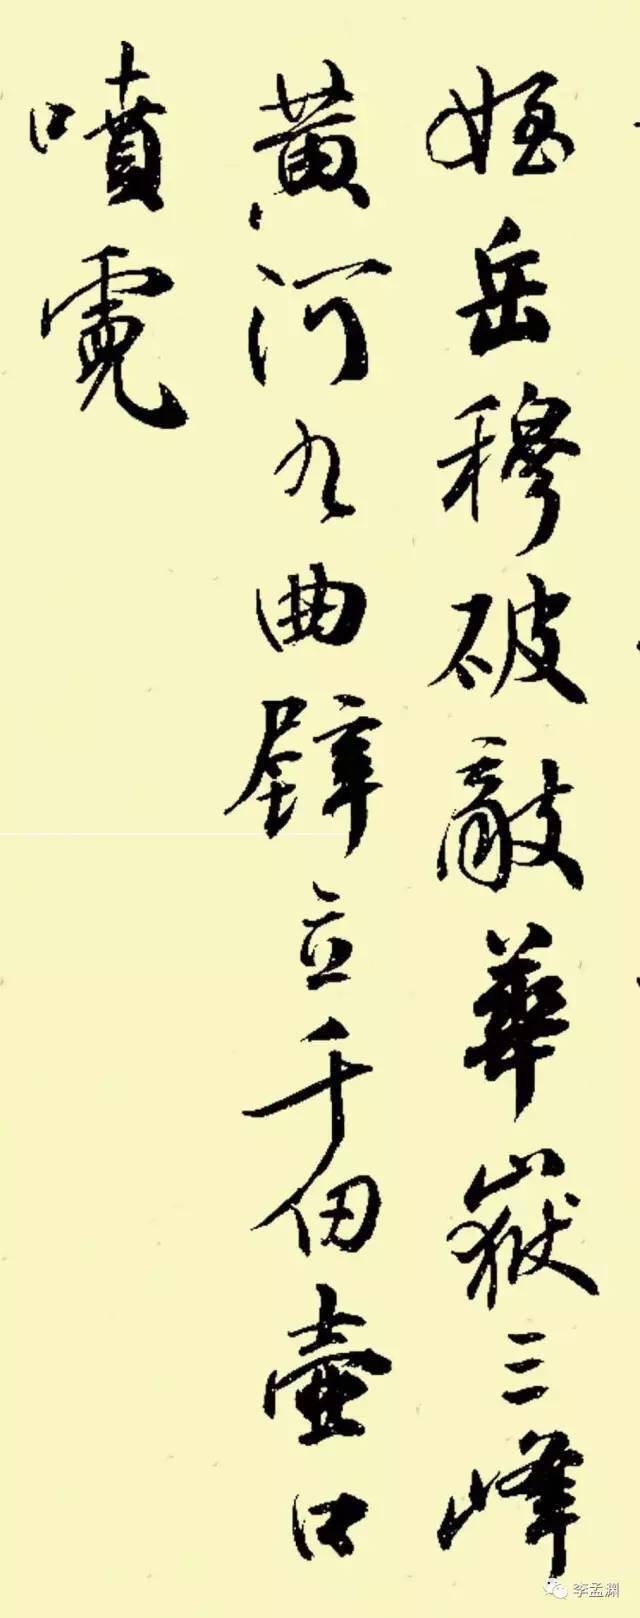 岳穆破敵華嶽三峰
黄河九曲壁立千仞壺口
噴霓
李孟渊